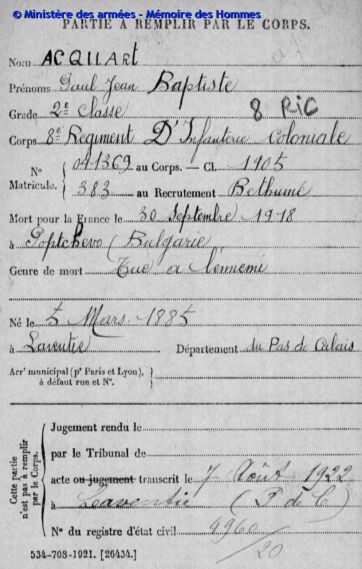 © Ministère des armées - Mémoire des Hommes
PARTIE À REMPLIR PAR LE CORPS.
Nom ACQUART
Prénoms Paul Jean Baptiste
Grade 2e Classe
8 RIC
Corps 8e Régiment D'Infanterie Coloniale
No Matricule. { 041369 au Corps. — Cl. 1905
383 au Recrutement Bethume
Mort pour la France le 30 Septembre 1918
à Poptchevo (Bulgarie)
Genre de mort Tué a l'ennemi
Né le 5 Mars 1885
à Laventie Département du Pas de Calais
Arrt municipal (pr Paris et Lyon), à défaut rue et No. }
Cette partie n'est pas à remplir par le Corps.
Jugement rendu le
par le Tribunal de
acte ou jugement transcrit le 7 Août 1922
à Laventie (P de C)
No du registre d'état civil 4960/20
534-708-1921. [26434.]